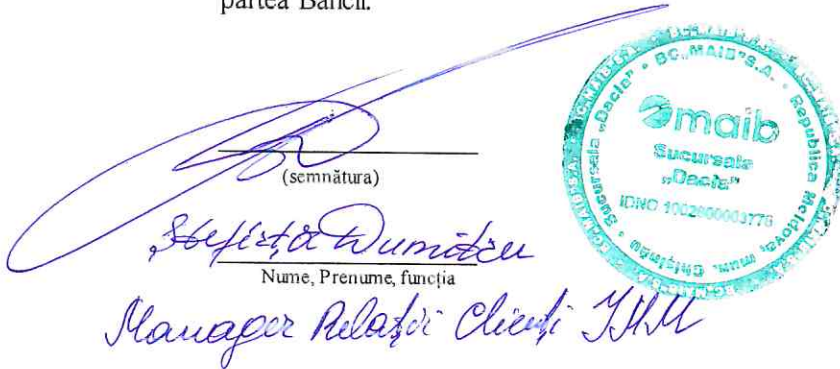 partea Băncii.
(semnătura)
Ștefîrța Dumitru
Nume, Prenume, funcția
Manager Relații Clienți IMM
BC „MAIB" S.A. • Republica Moldova, mun. Chișinău • Sucursala „Dacia" •
maib
Sucursala
„Dacia"
IDNO 1002600003778